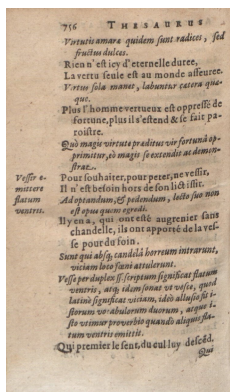 756 THESAURUS
Virtutis amaræ quidem sunt radices, sed
fructus dulces.
Rien n'est icy d'eternelle duree,
La vertu seule est au monde asseuree.
Virtus sola manet, labuntur cætera quæ-
que.
Plus l'homme vertueux est oppressé de
fortune, plus il s'estend & se fait pa-
roistre.
Quò magis virtute præditus vir fortunâ op-
primitur, eò magis se extendit ac demon-
strat.
Vessir e-
mittere
flatum
ventris.
Pour souhaiter, pour peter, ne vessir,
Il n'est besoin hors de son lict issir.
Ad optandum, & pedendum, lecto suo non
est opus quem egredi.
Il y en a, qui ont esté au grenier sans
chandelle, ils ont apporté de la ves-
se pour du foin.
Sunt qui absq; candelâ horreum intrarunt,
viciam loco fœni attulerunt.
Vesse per duplex ss. scriptum significat flatum
ventris, atq; idem sonat vt vesce, quod
latinè significat viciam, ideò allusio fit i-
storum vocabulorum duorum, atque i-
sto vtimur proverbio quando aliquis fla-
tum ventris emittit.
Qui premier le sent, du cul luy descẽd.
Qui